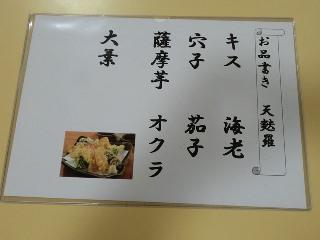 お品書き 天麩羅
キス 海老
穴子 茄子
薩摩芋 オクラ
大葉